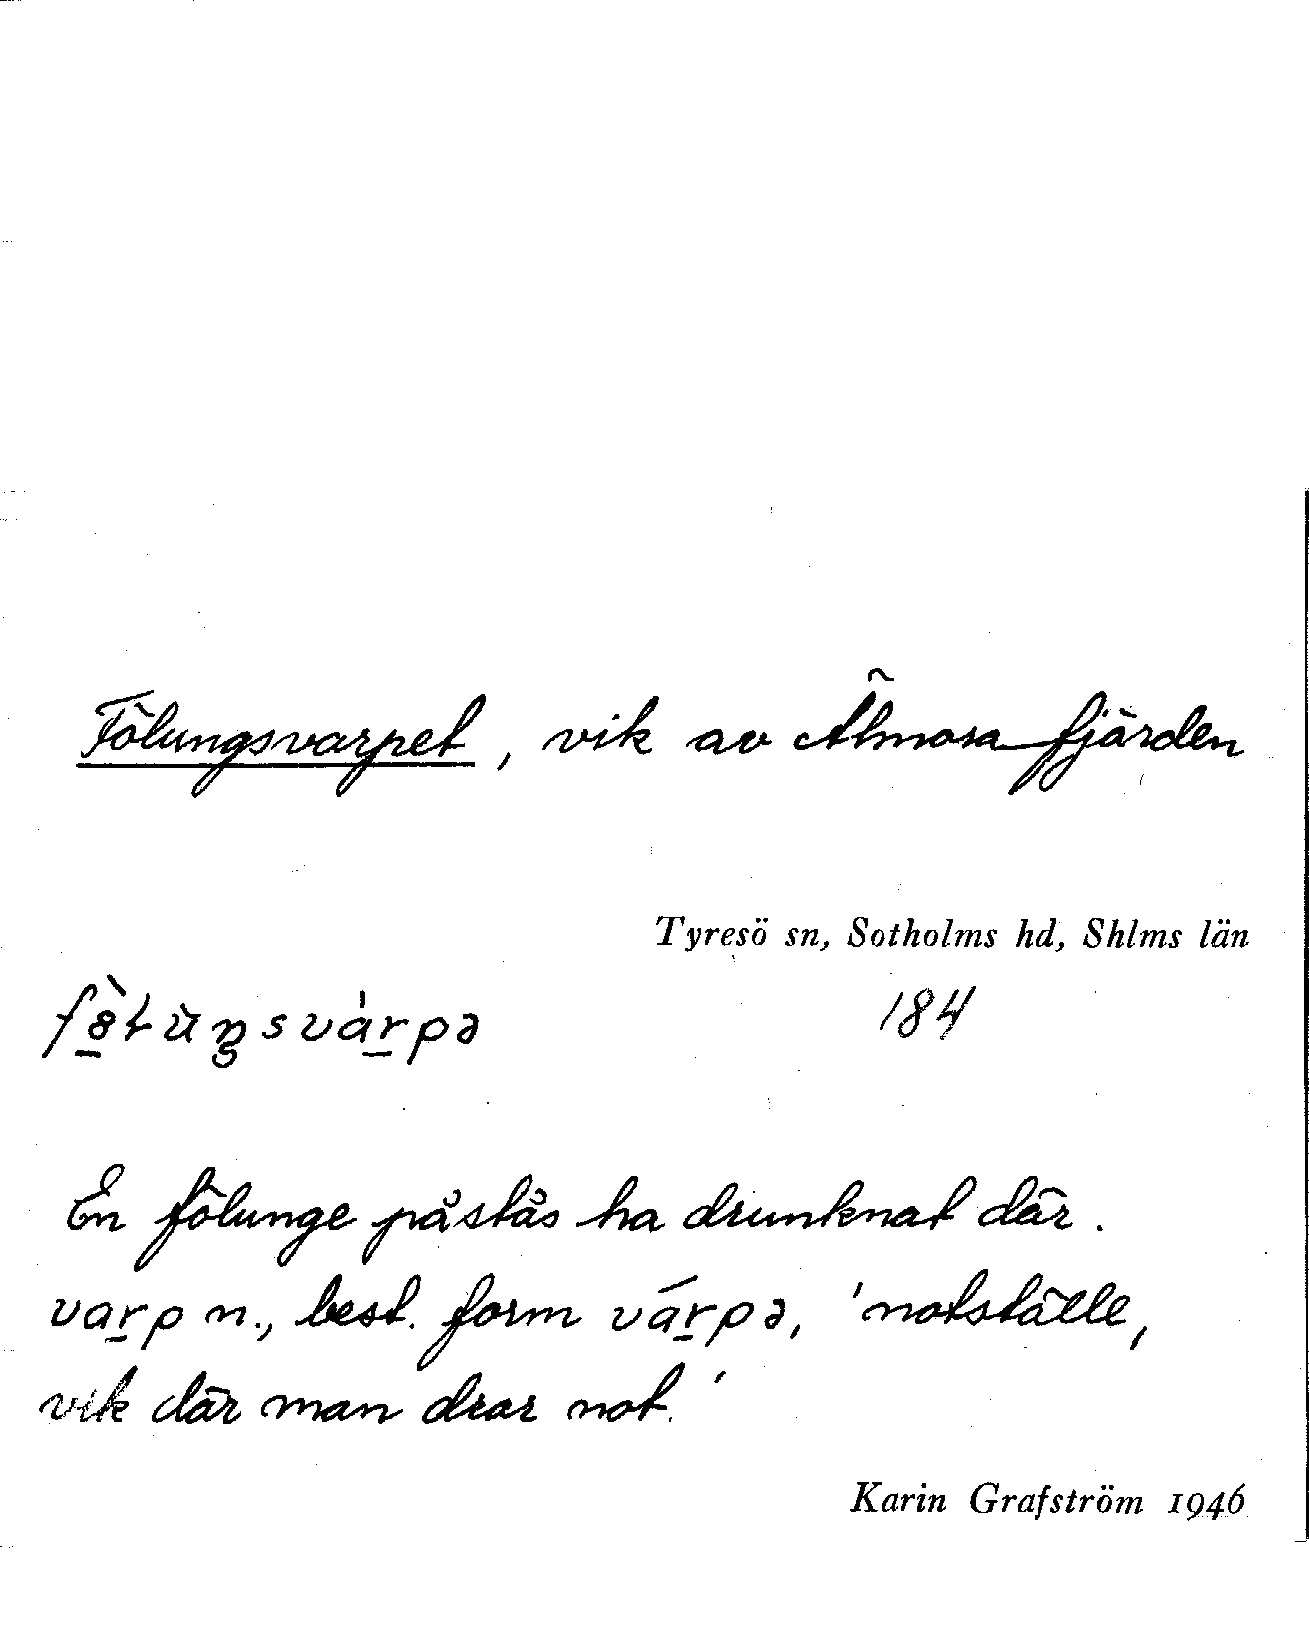 Fölungsvarpet, vik av Älmora fjärden
Tyresö sn, Sotholms hd, Shlms län
184
En fölunge påstås ha drunknat där.
varp n., best. form várpə, 'notställe,
vik där man drar not.'
Karin Grafström 1946